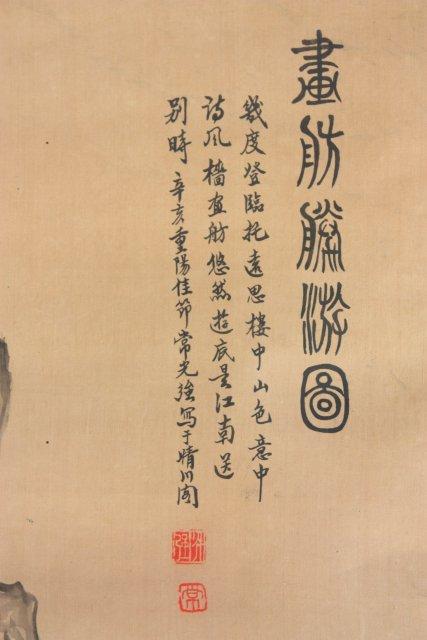 畫舫勝游圖
幾度登臨托遠思樓中山色意中
詩風檣畫舫悠然遊底是江南送
別時 辛亥重陽佳節常光強写于晴川阁
光強
常